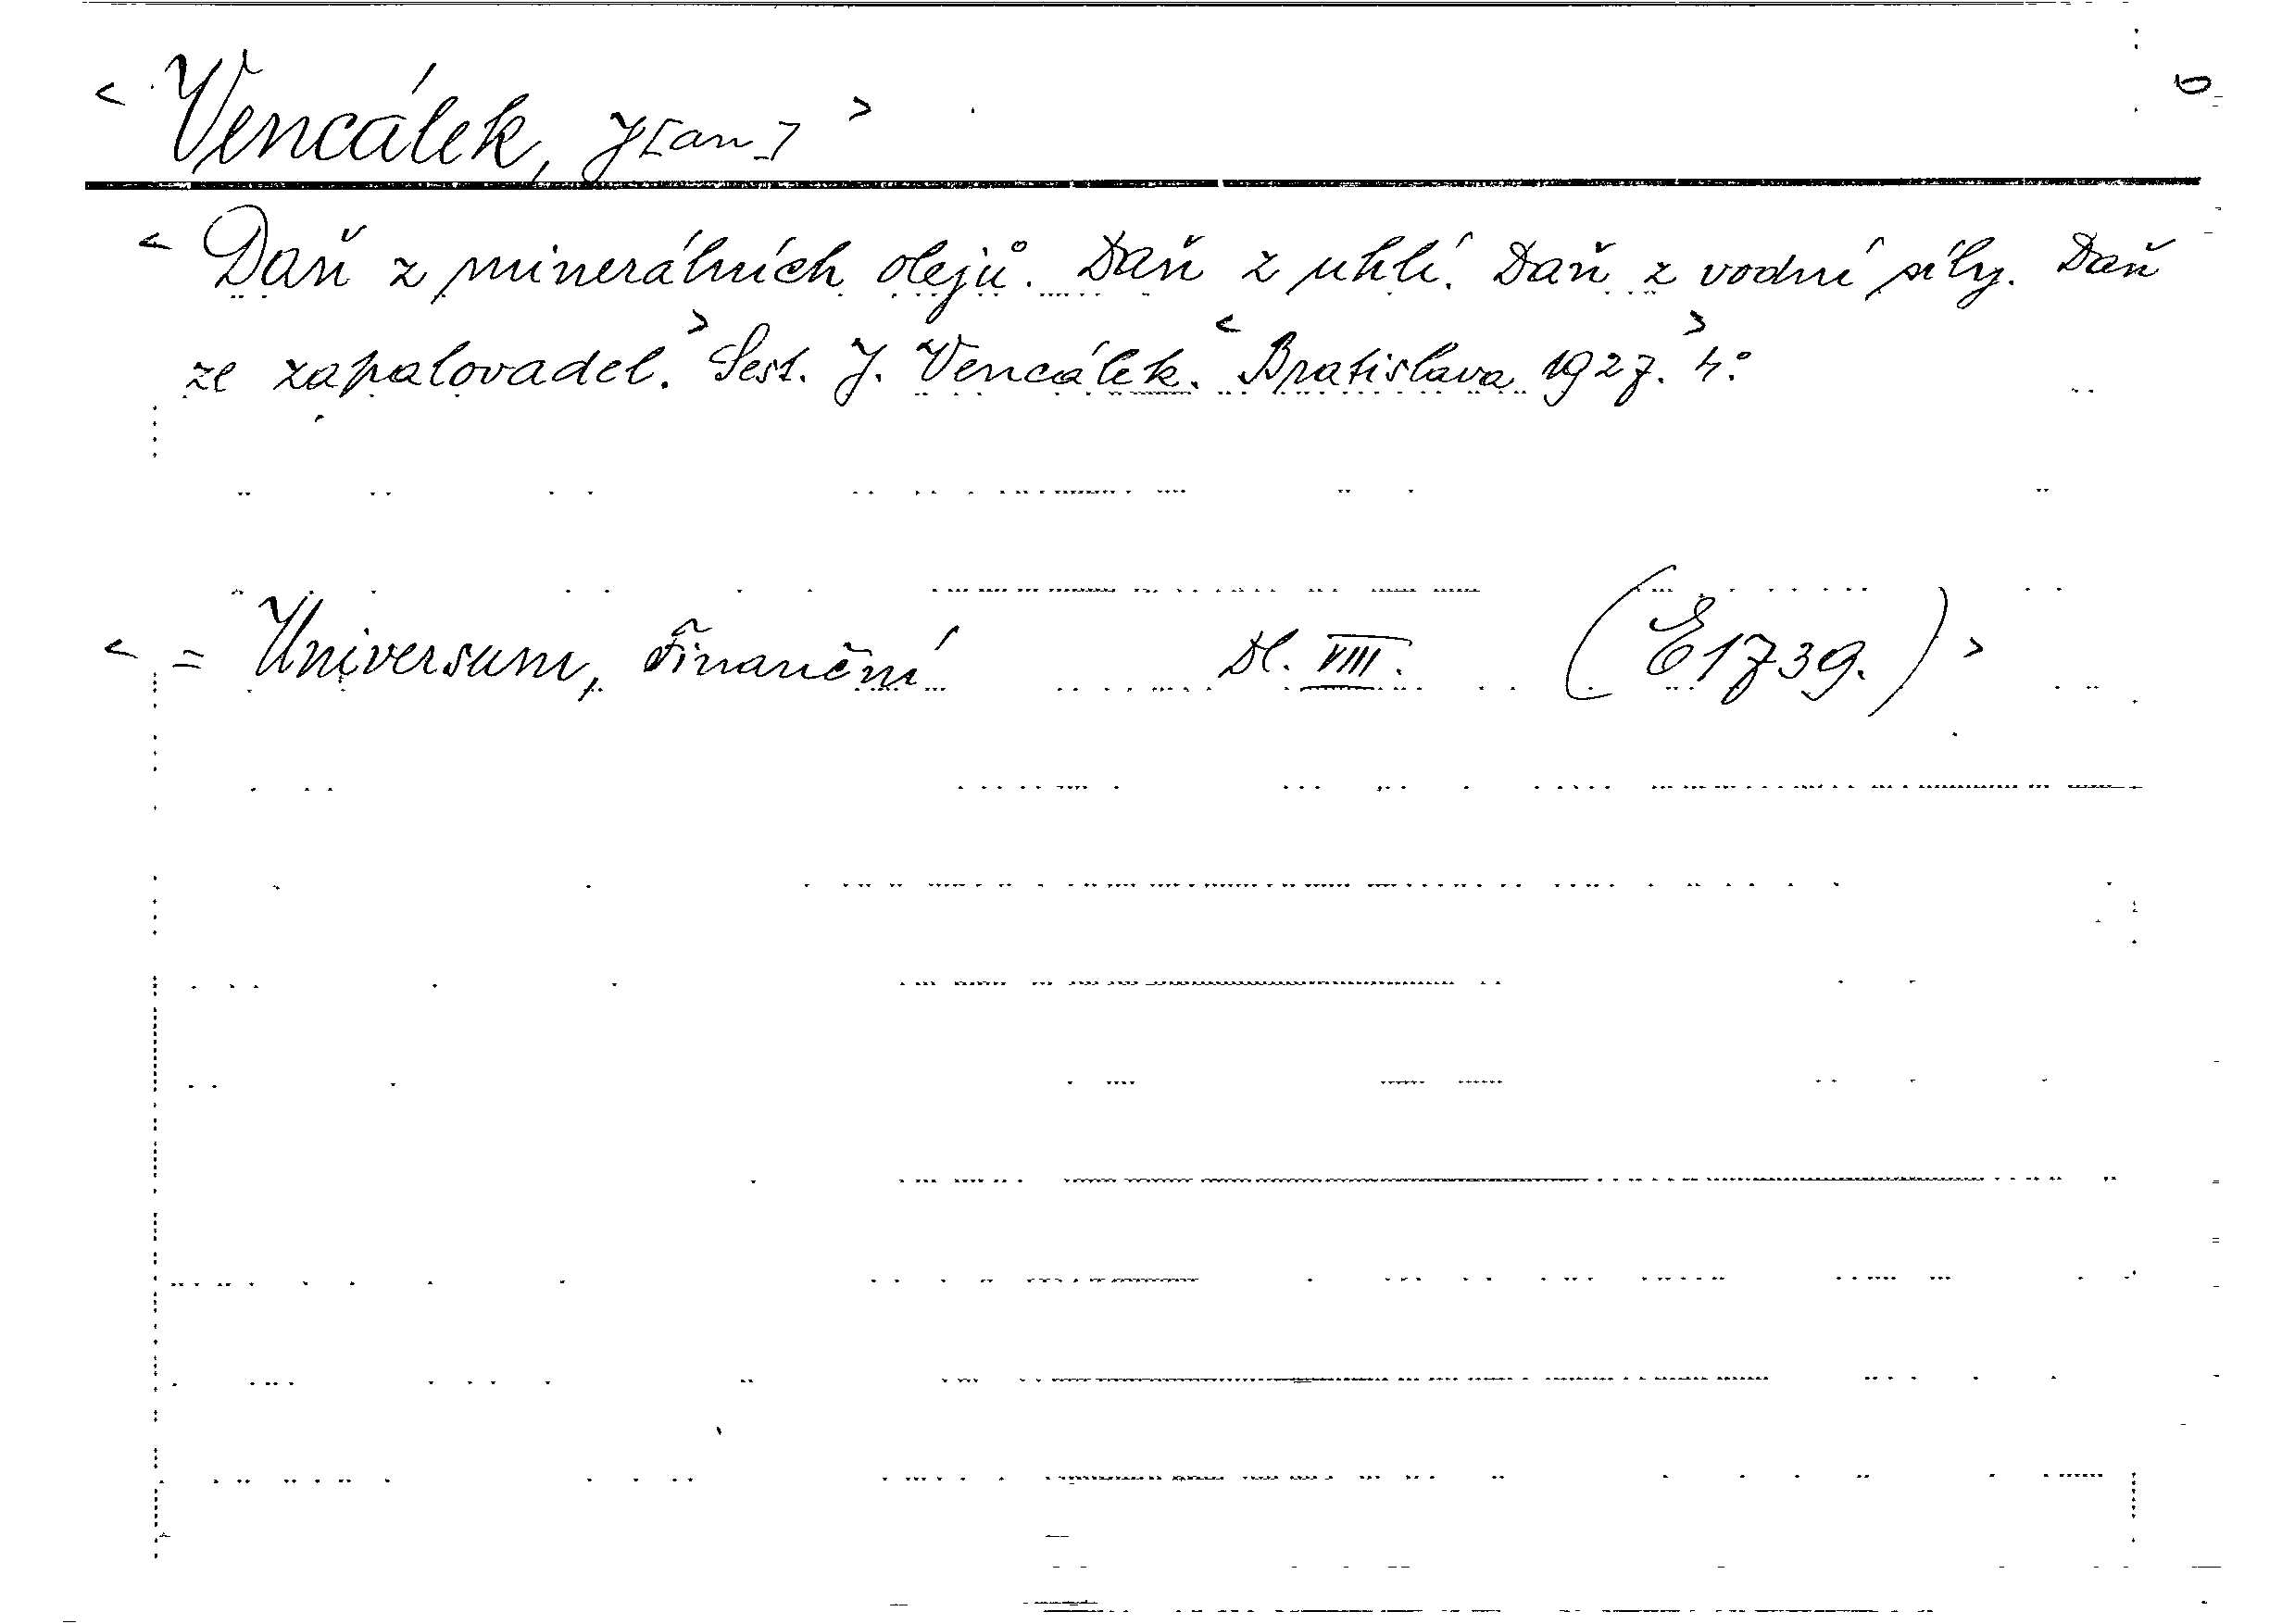 < Vencálek, J[an] >
< Daň z minerálních olejů. Daň z uhlí. Daň z vodní síly. Daň
ze zapalovadel. > Sest. J. Vencálek. < Bratislava 1927. > 4°
< = Universum, Finanční Dl. VIII. (E1739.) >